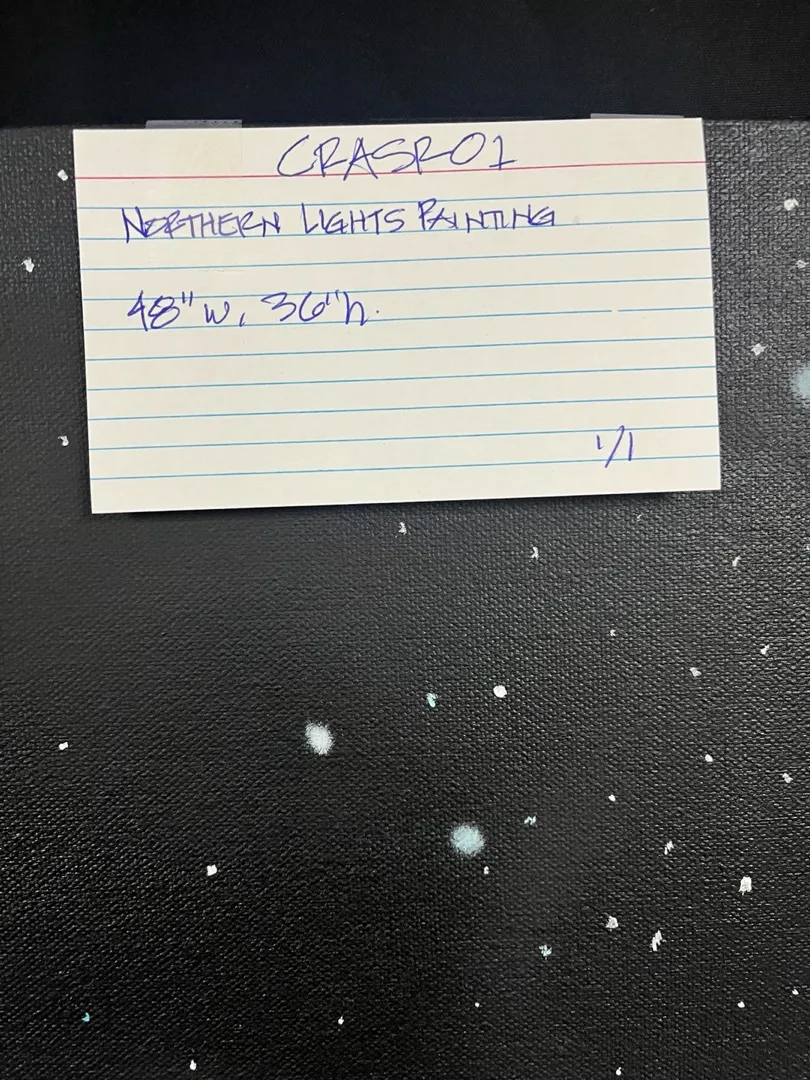 CRASR01
NORTHERN LIGHTS PAINTING
48" w, 36" h.
1/1